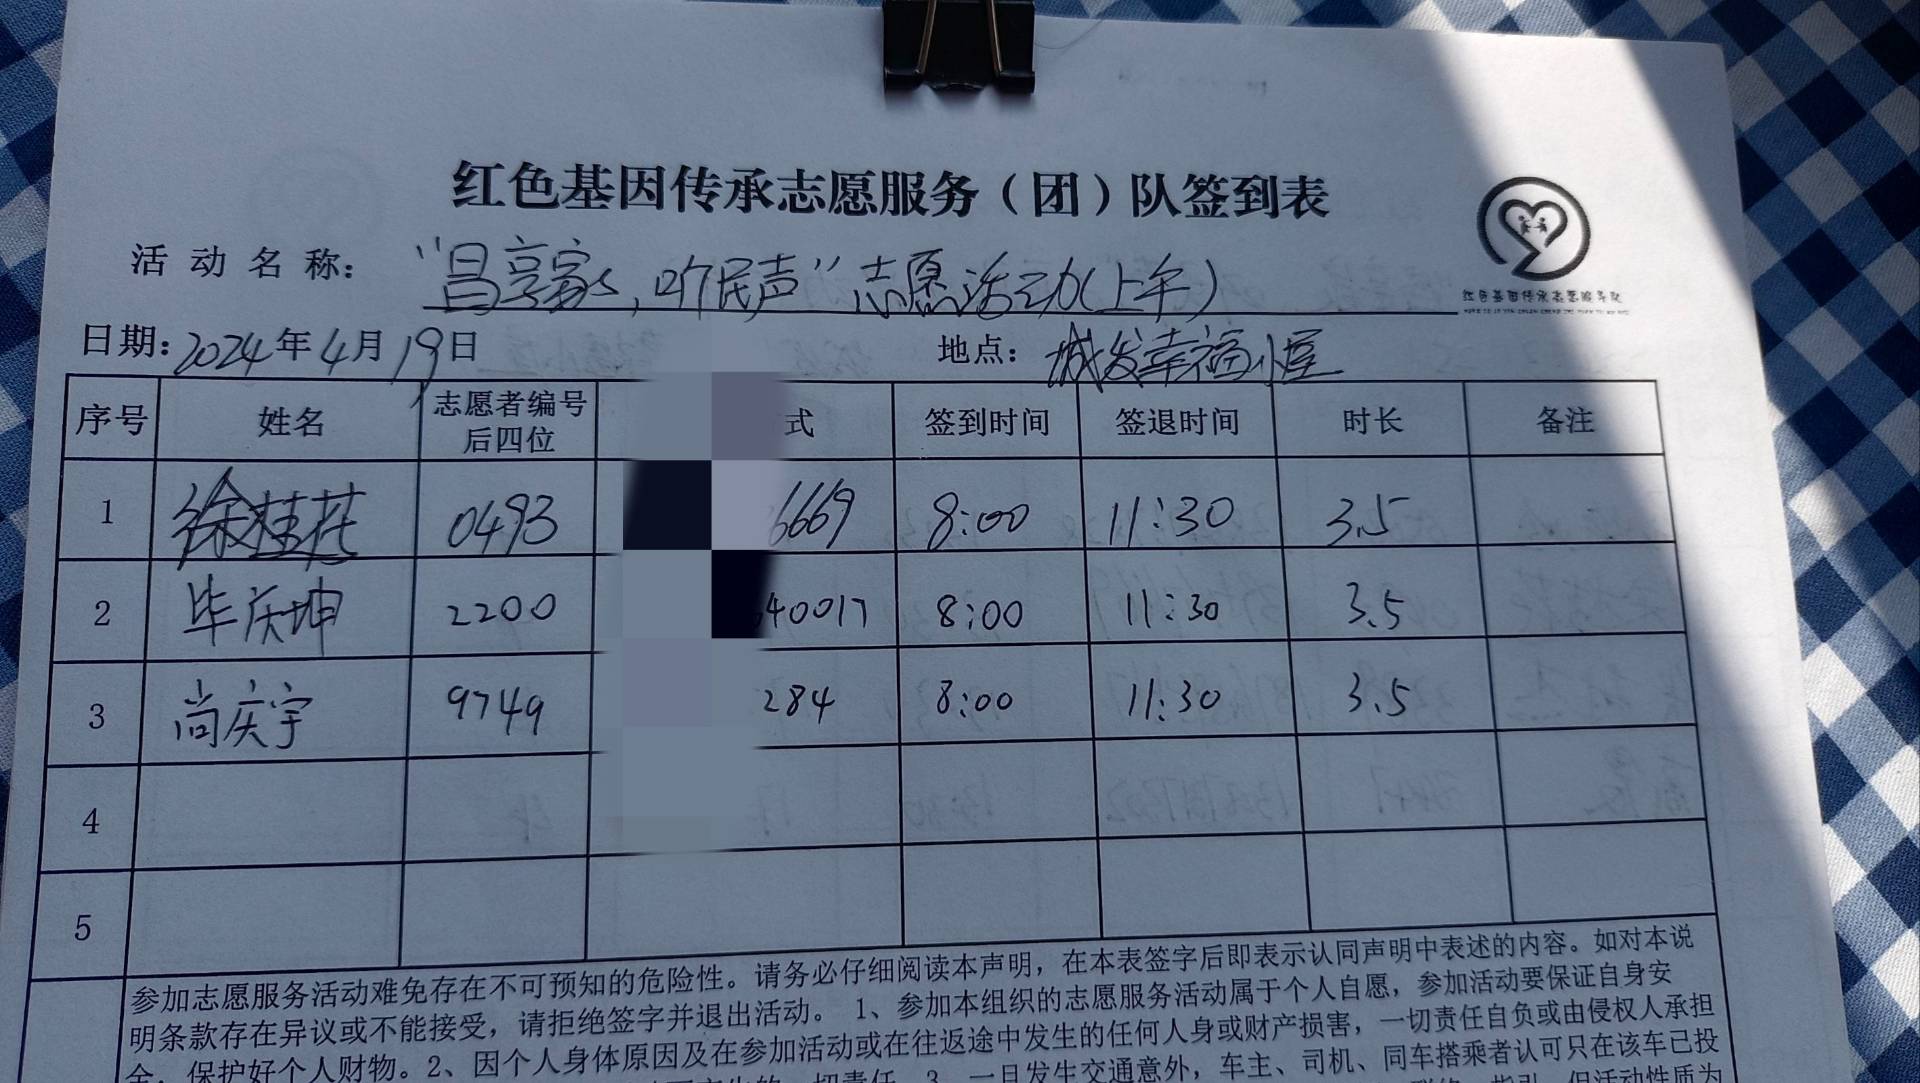 红色基因传承志愿服务（团）队签到表
活动名称：“昌享家，听民声”志愿活动（上午）
红色基因传承志愿服务队
日期：2024年4月19日 地点：城发幸福小屋
序号 姓名 志愿者编号后四位 式 签到时间 签退时间 时长 备注
1 徐桂花 0493 6669 8:00 11:30 3.5
2 毕庆坤 2200 40017 8:00 11:30 3.5
3 尚庆宇 9749 284 8:00 11:30 3.5
4
5
参加志愿服务活动难免存在不可预知的危险性。请务必仔细阅读本声明，在本表签字后即表示认同声明中表述的内容。如对本说
明条款存在异议或不能接受，请拒绝签字并退出活动。 1、参加本组织的志愿服务活动属于个人自愿，参加活动要保证自身安
全，保护好个人财物。2、因个人身体原因及在参加活动或在往返途中发生的任何人身或财产损害，一切责任自负或由侵权人承担
一切责任 3、一旦发生交通意外，车主、司机、同车搭乘者认可只在该车已投